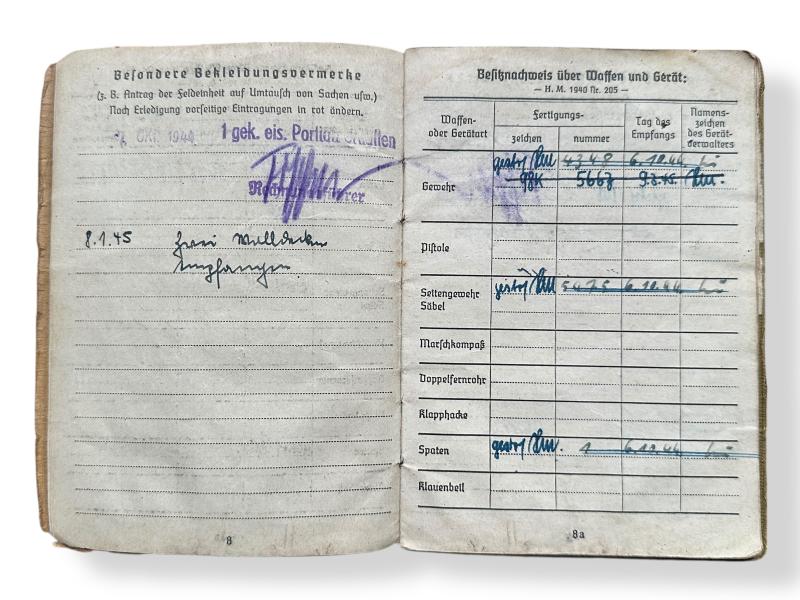 Besondere Bekleidungsvermerke
(z. B. Antrag der Feldeinheit auf Umtausch von Sachen usw.)
Nach Erledigung vorseitige Eintragungen in rot ändern.
OKT. 1944 1 gek. eis. Portion erhalten
8.1.45 Zwei Wolldecken
empfangen
8
Besitznachweis über Waffen und Gerät:
— H. M. 1940 Nr. 205 —
Waffen- oder Gerätart
Fertigungs-
zeichen
nummer
Tag des Empfangs
Namens-zeichen des Gerät-verwalters
4348 6.10.44.
Gewehr 98k 5667
Pistole
Seitengewehr 5475 6.10.44.
Säbel
Marschkompaß
Doppelfernrohr
Klapphacke
Spaten 1
Klauenbeil
8a